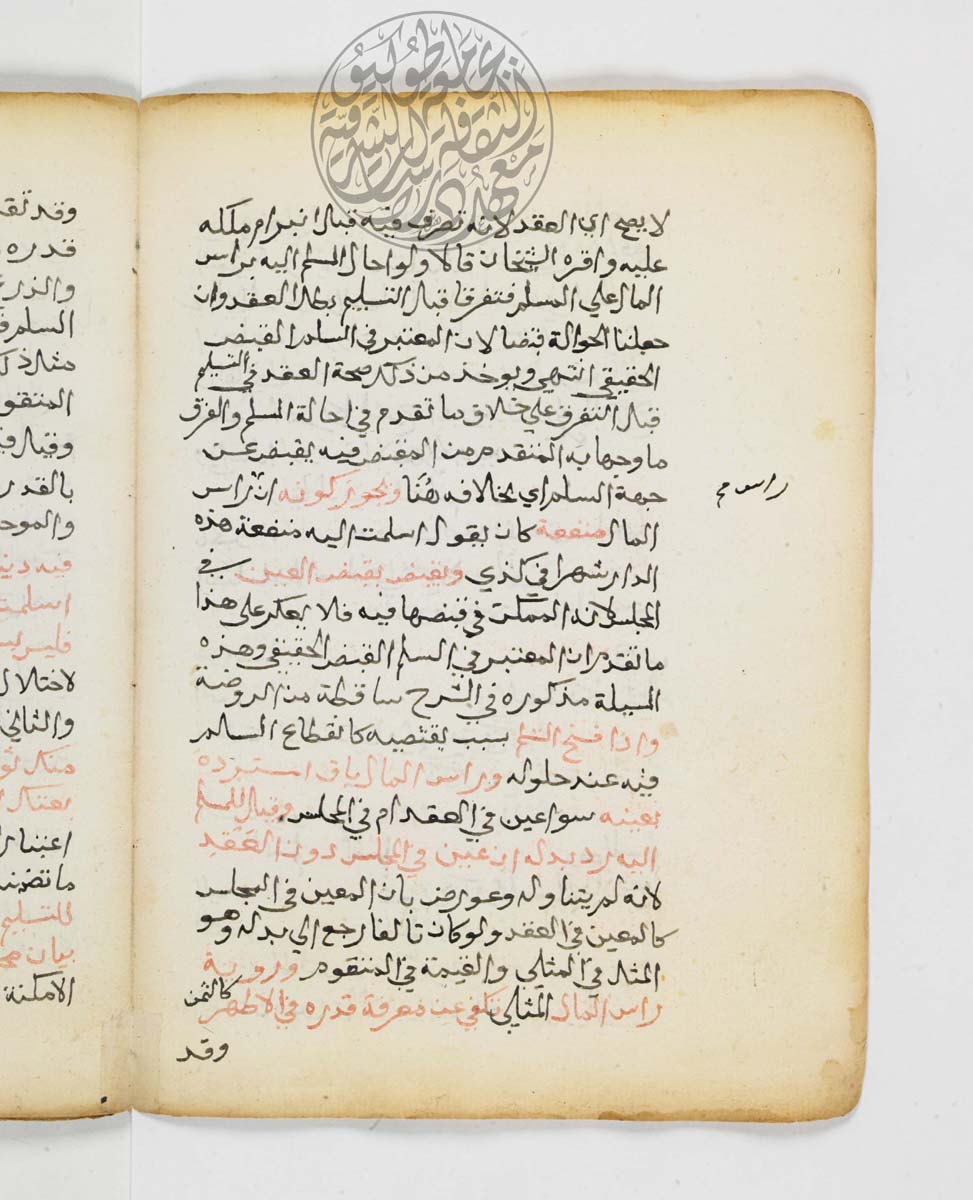 لا يصح اي العقد لانه تصرف فيه قبل انبرام ملكه
عليه واقره الشيخان قالا ولو احال المسلم اليه براس
المال علي المسلم فتفرقا قبل التسليم بطل العقد وان
جعلنا الحوالة قبضا لان المعتبر في السلم القبض
الحقيقي انتهي ويوخذ من ذلك صحة العقد في التسليم
قبل التفرق علي خلاف ما تقدم في احالة المسلم والفرق
ما وجها به المتقدم من المقبض فيه يقبض عن
جهة السلم اي بخلافه هنا ويجوز كونه اي راس
راس مح
المال منفعة كان يقول اسلمت اليه منفعة هذه
الدار شهرا في كذي ويقبض بقبض العين في
المجلس لانه الممكن في قبضها فيه فلا يعكر على هذا
ما تقدم ان المعتبر في السلم القبض الحقيقي وهذه
المسيلة مذكوره في الشرح ساقطة من الروضة
واذا فسخ السلم بسبب يقتضيه كانقطاع المسلم
فيه عند حلوله وراس المال باق استرده
بعينه سوا عين في العقد ام في المجلس وقيل للمسلم
اليه رد بدله ان عين في المجلس دون العقد
لانه لم يتناوله وعورض بان المعين في المجلس
كالمعين في العقد ولو كان تالفا رجع الي بدله وهو
المثل في المثلي والقيمة في المتقوم وروية
راس المال المثلي تكفي عن معرفة قدره في الاظهر كالثمن
وقد
وقد
قدره
السلم
مثل
وقيل
بالقدر
اسلمت
فليس
والثاني
للتسليم
بيان
الامكنة